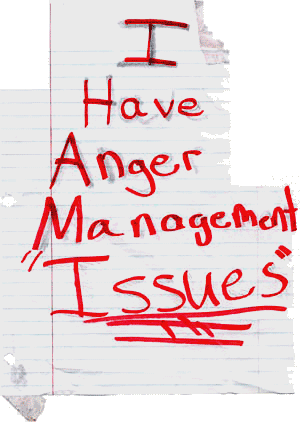 I
Have
Anger
Management
"Issues"